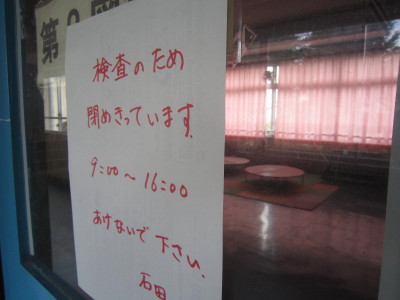 第
検査のため
閉めきっています.
9:00～16:00
あけないで下さい.
石田